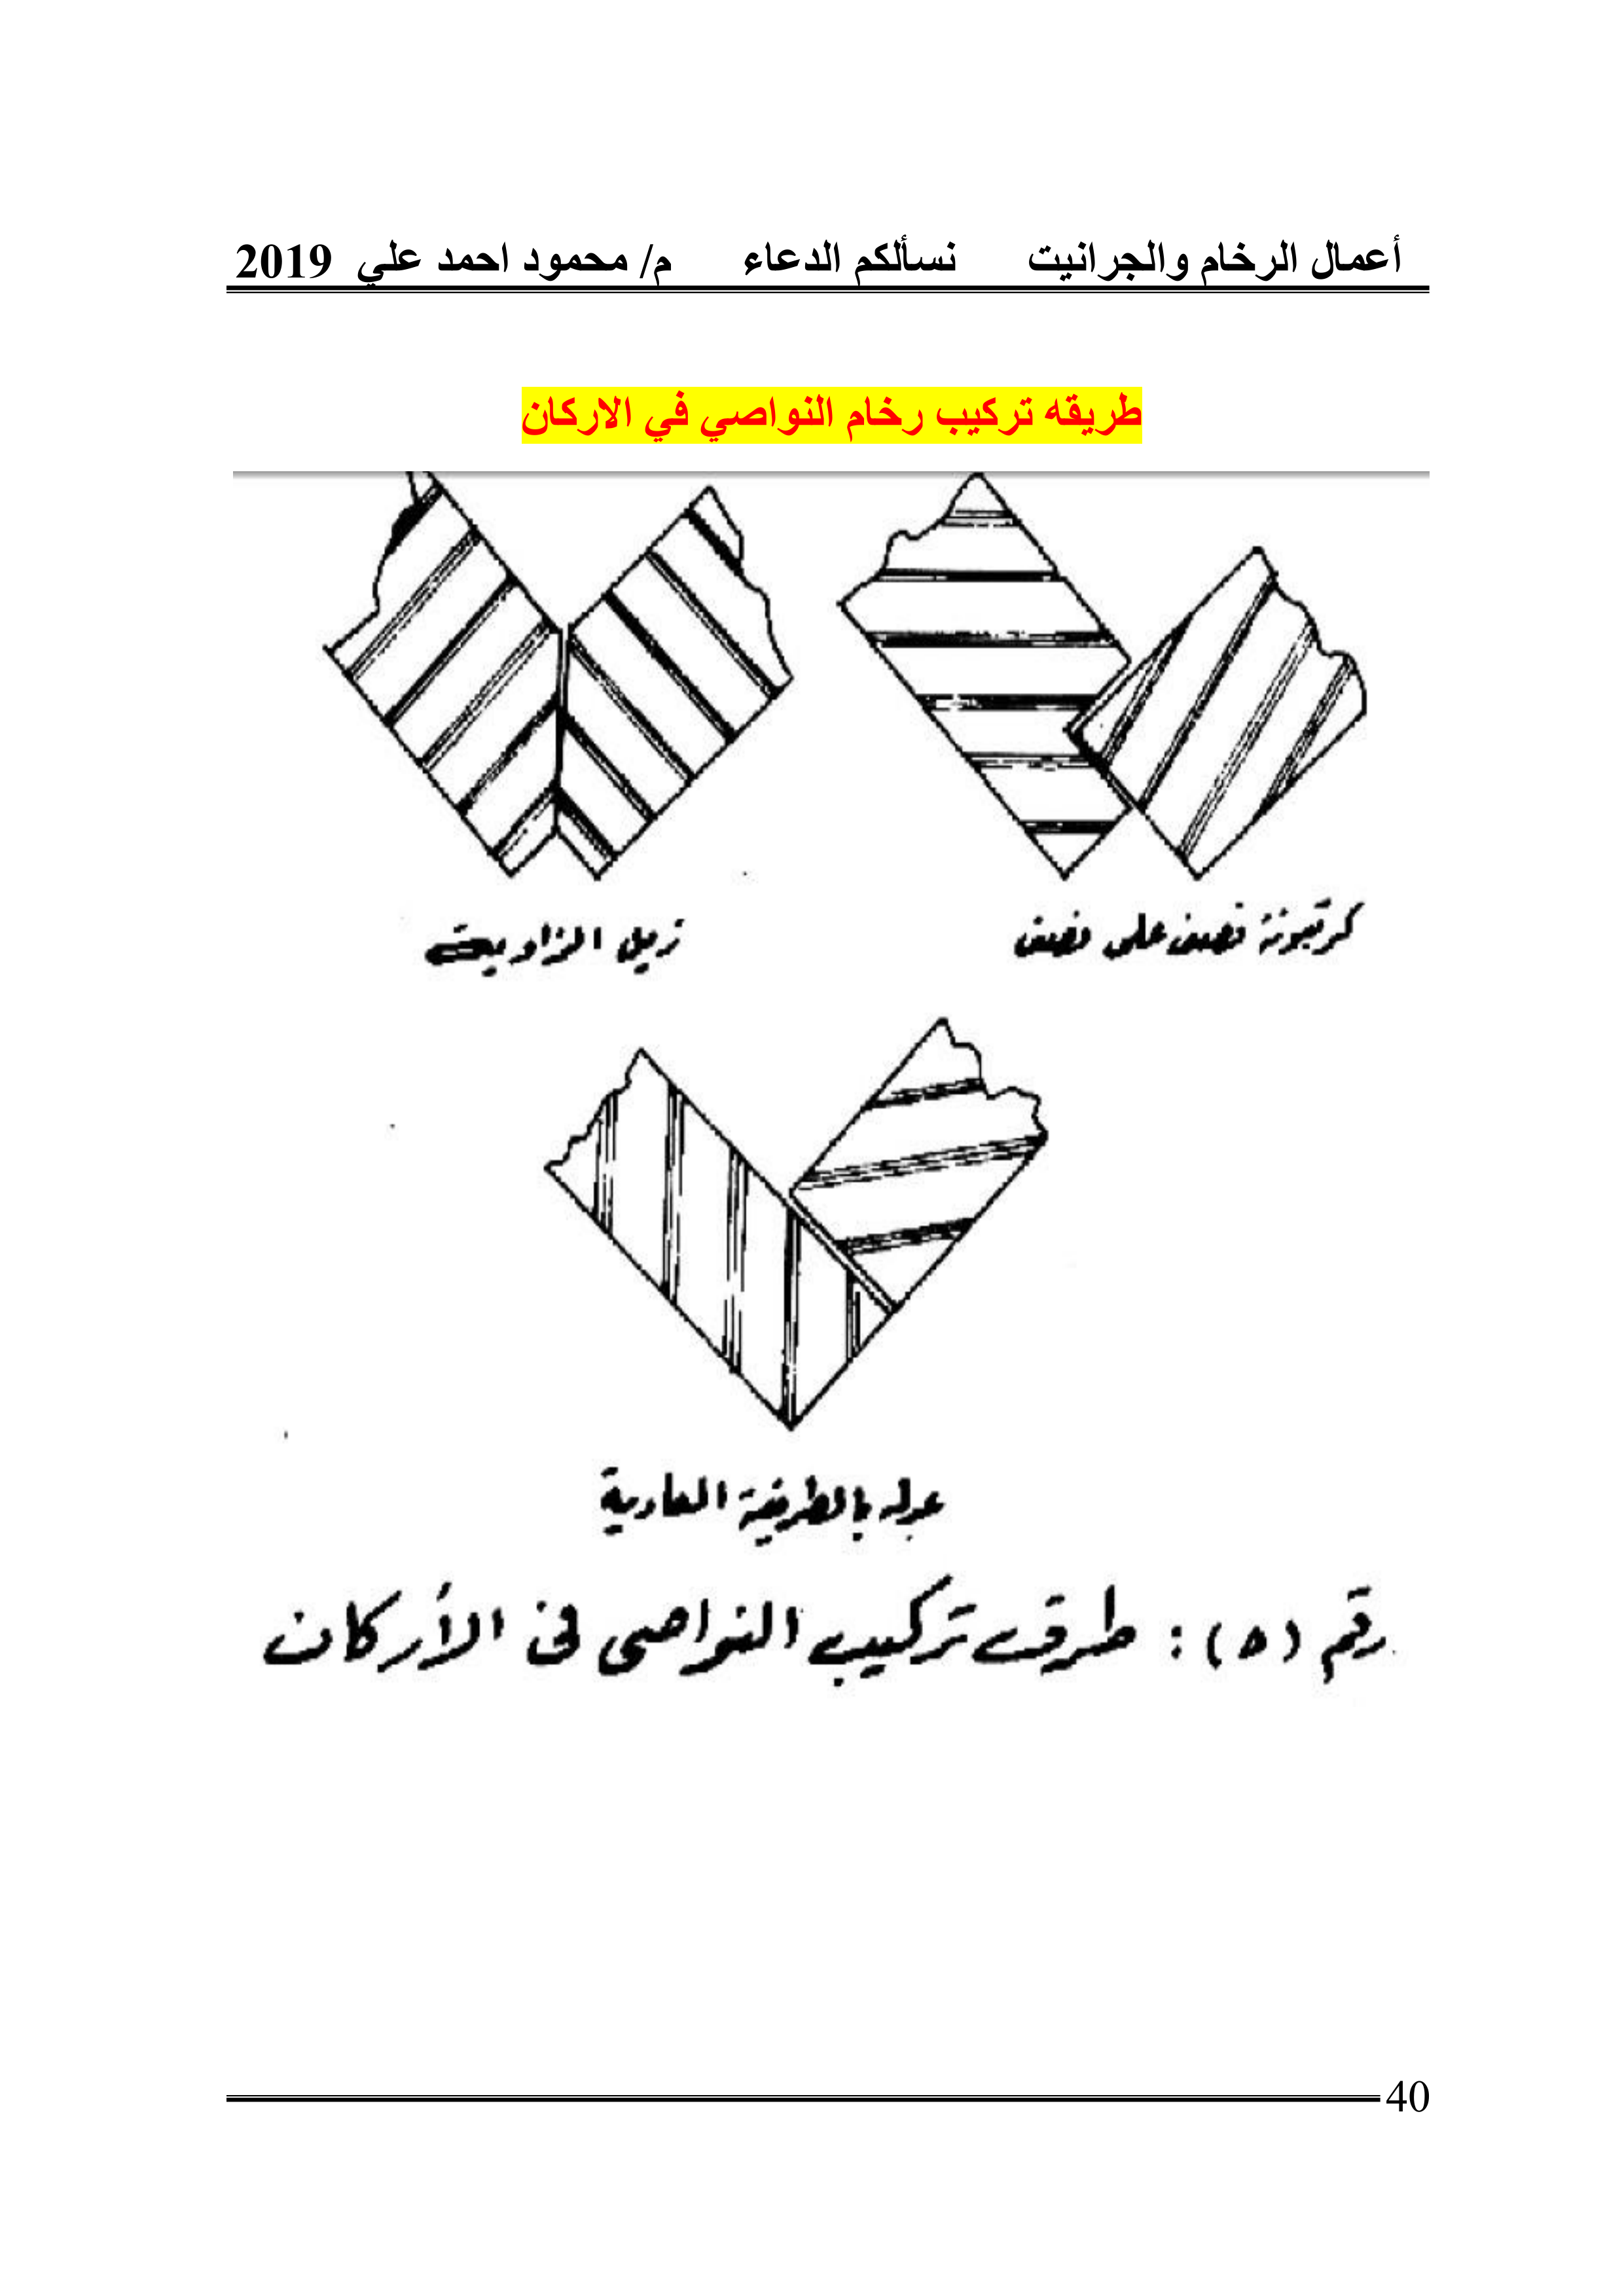 أعمال الرخام والجرانيت نسألكم الدعاء م/ محمود احمد علي 2019
طريقه تركيب رخام النواصي في الاركان
نصف على نصف
بالطريقة العادية
رقم (٥): طرق تركيب النواصى فى الأركان
40